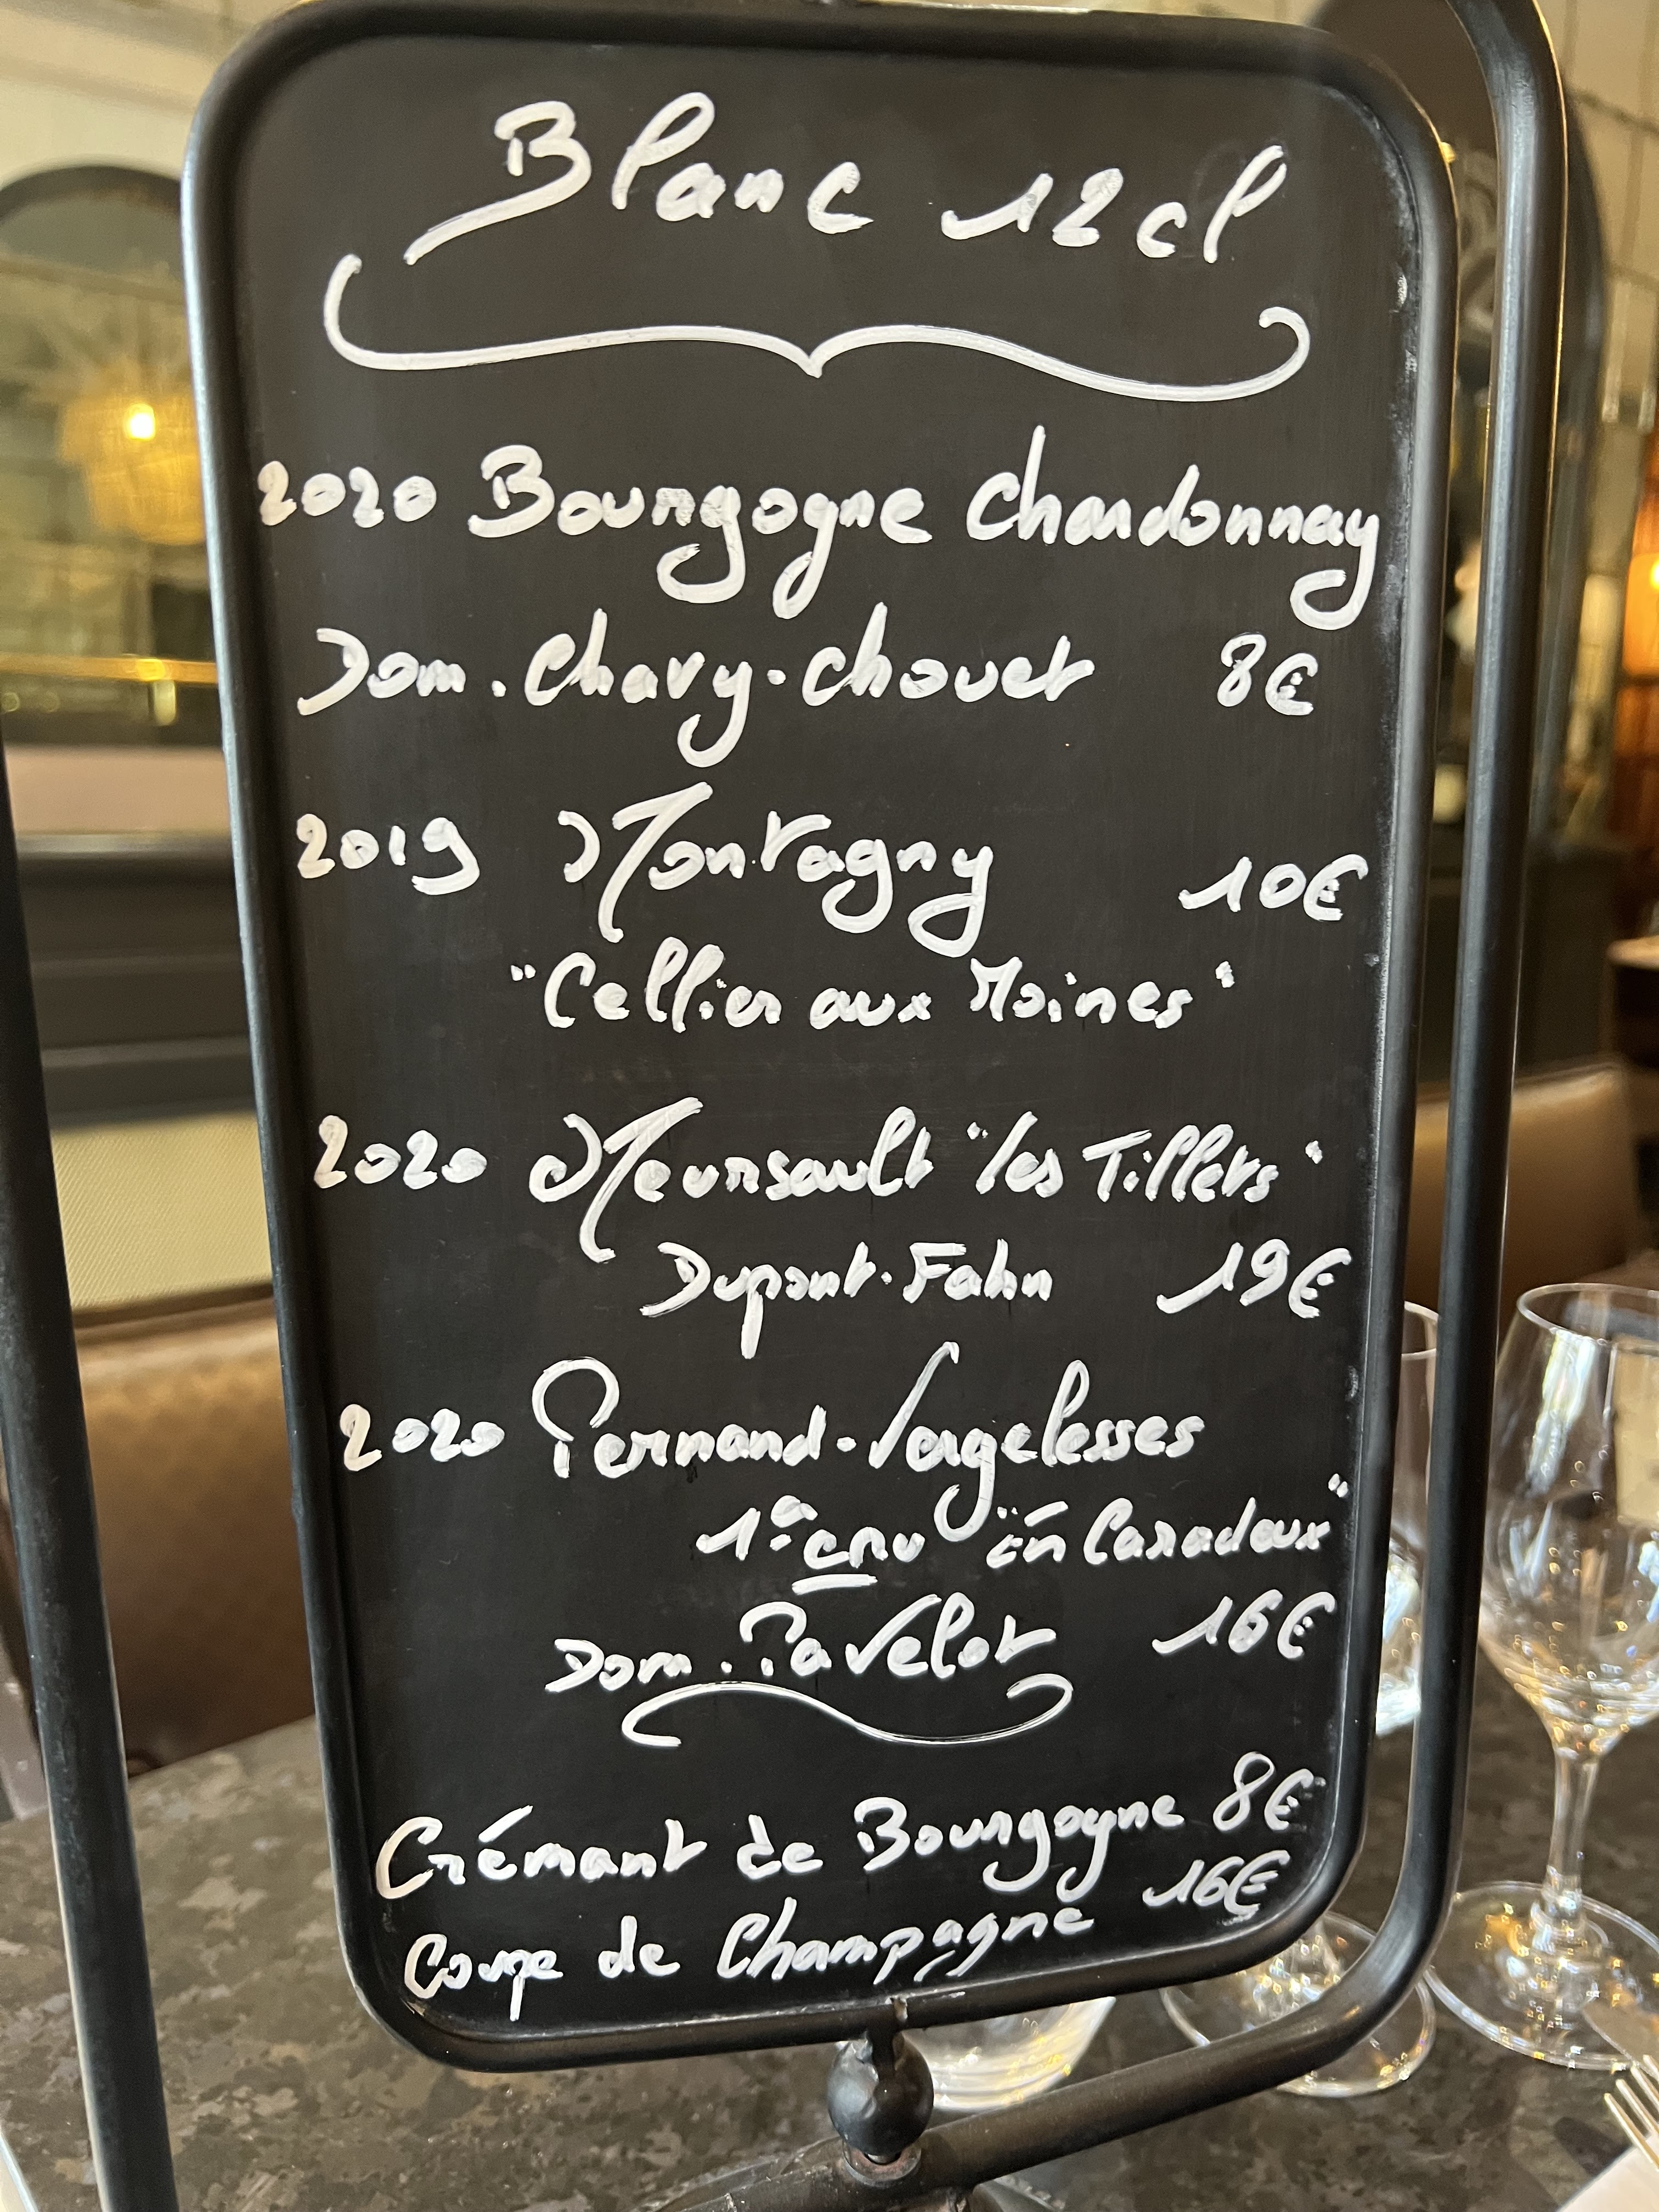 Blanc 12cl
2020 Bourgogne Chardonnay
Dom. Chavy-Chouet 8€
2019 Montagny 10€
"Cellier aux Moines"
2020 Meursault "les Tillets"
Dupont-Fahn 19€
2020 Pernand-Vergelesses
1er cru "En Caradeux"
Dom. Pavelot 16€
Crémant de Bourgogne 8€
Coupe de Champagne 16€